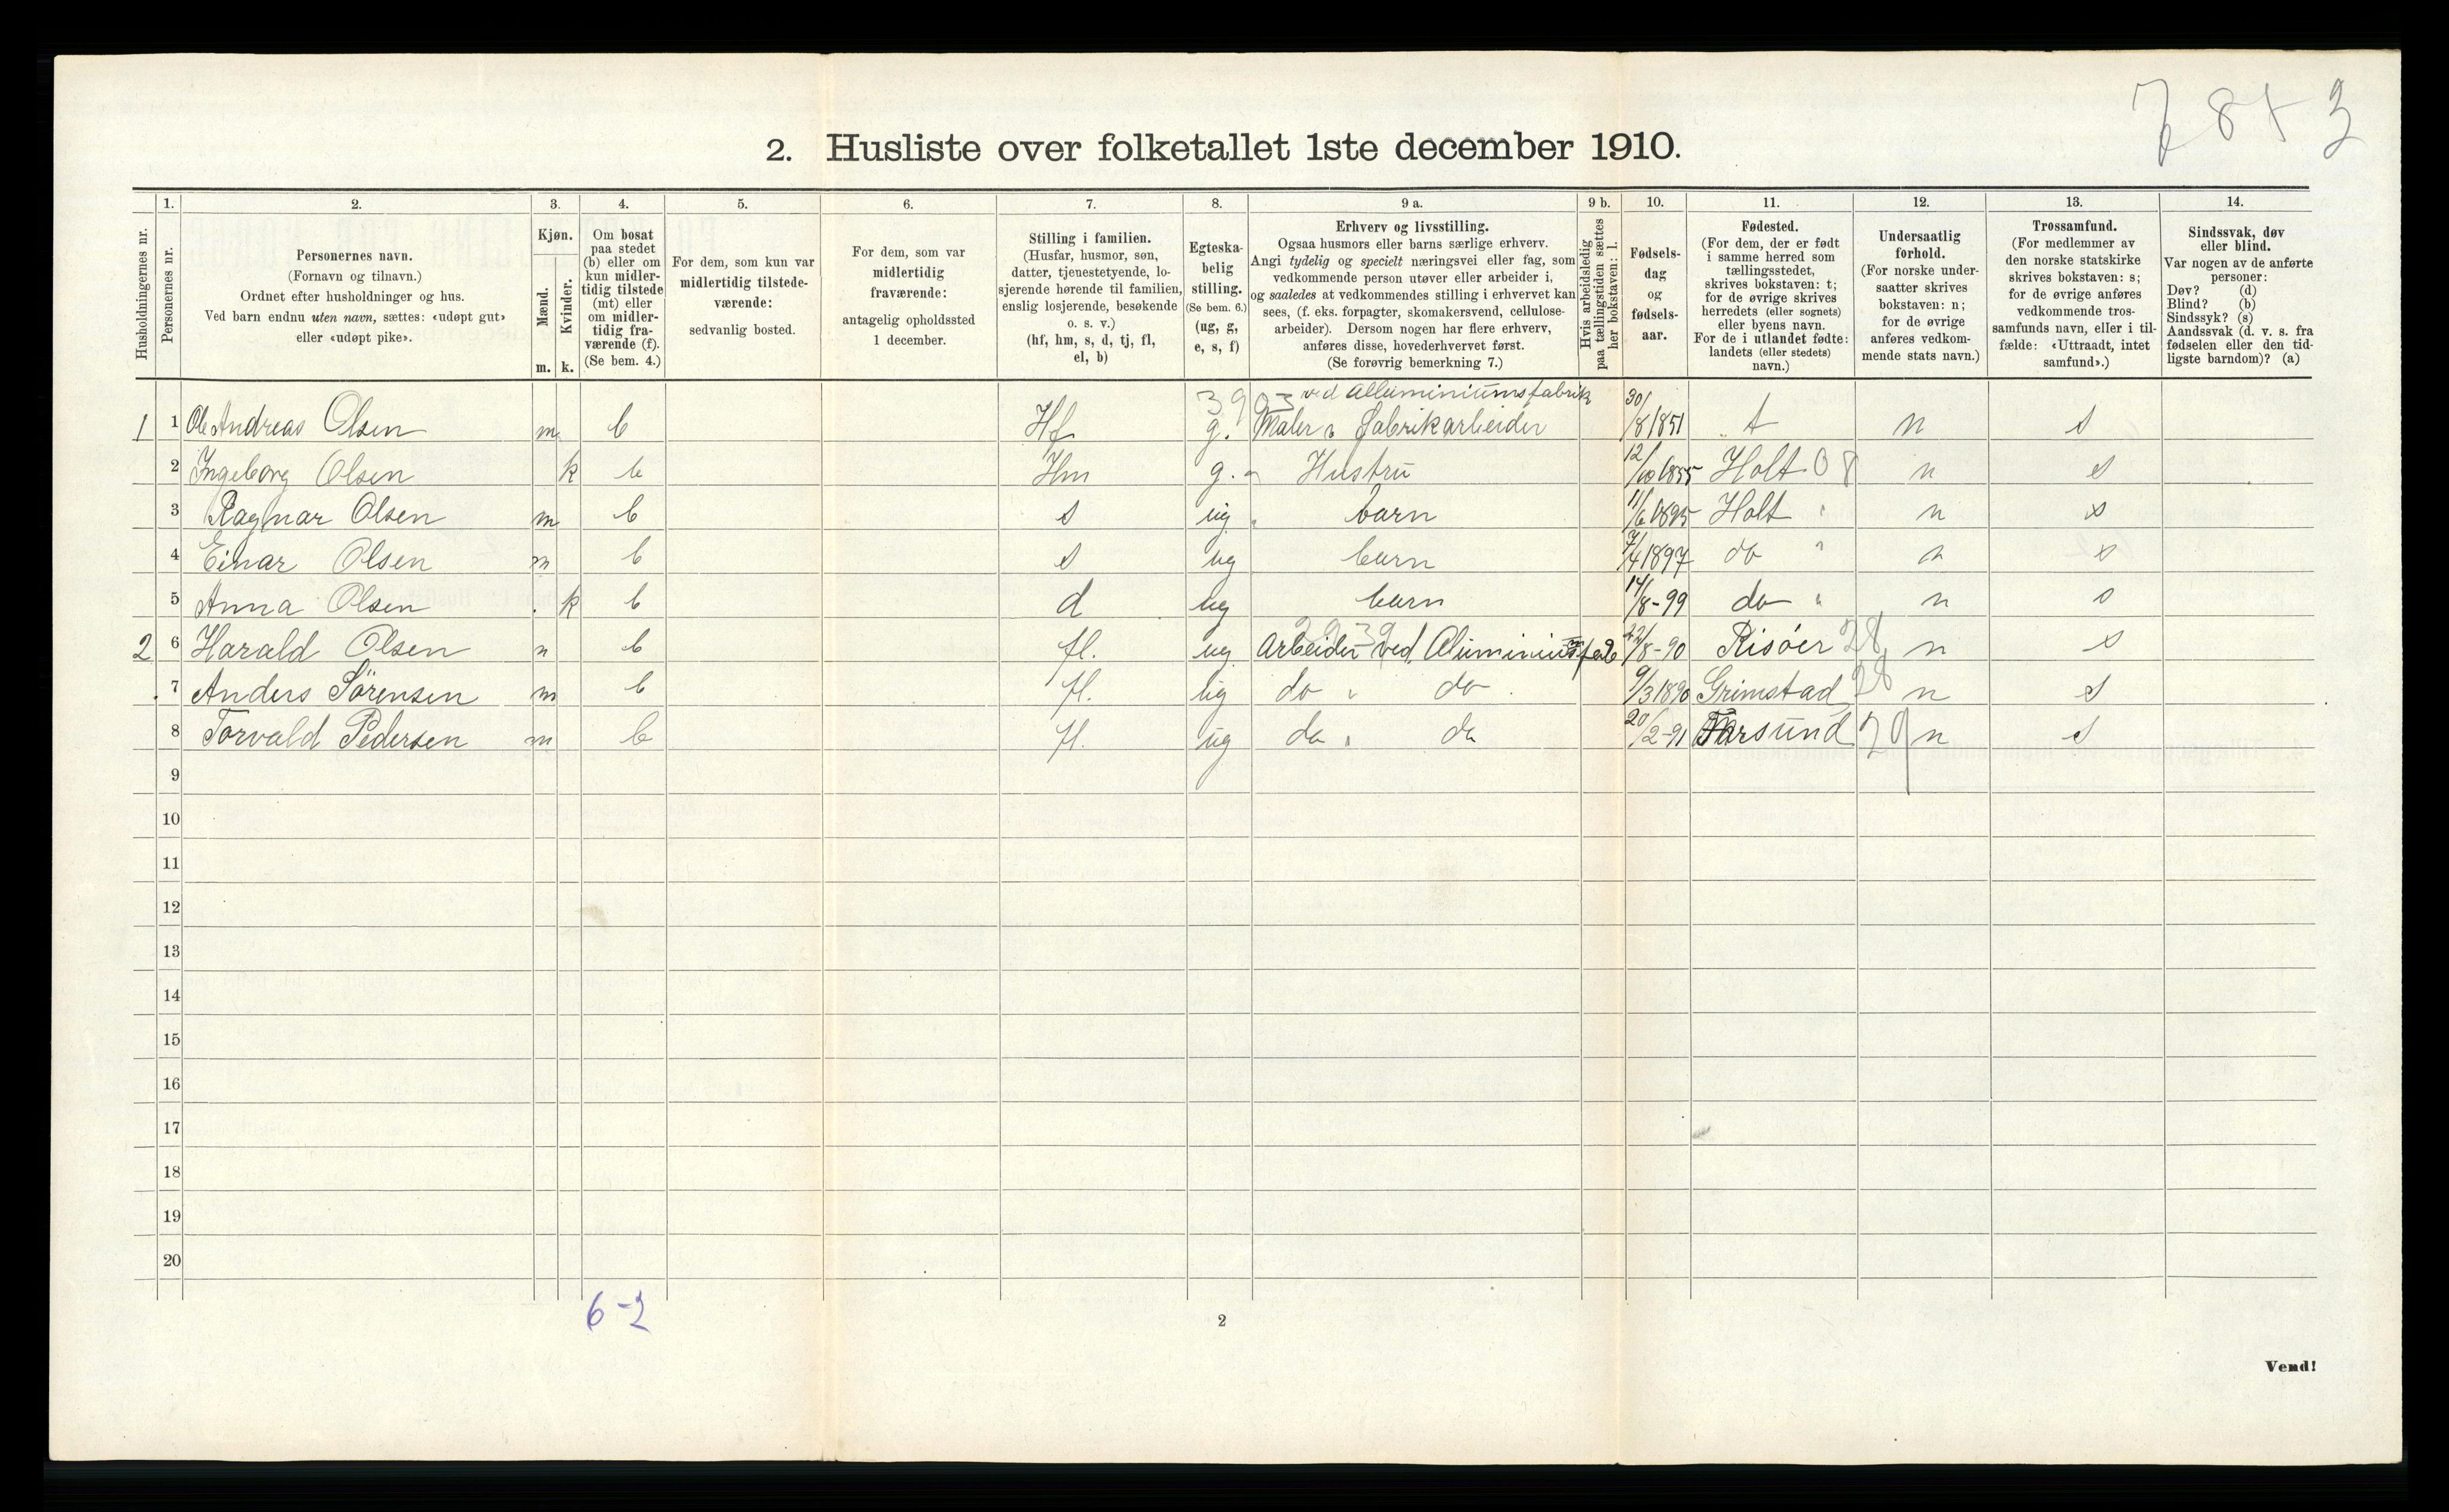 2. Husliste over folketallet 1ste december 1910.
1. 2. 3. 4. 5. 6. 7. 8. 9 a. 9 b. 10. 11. 12. 13. 14.
Husholdningernes nr.
Personernes nr.
Personernes navn.
(Fornavn og tilnavn.)
Ordnet efter husholdninger og hus.
Ved barn endnu uten navn, sættes: «udøpt gut»
eller «udøpt pike».
Kjøn.
Mænd.
Kvinder.
m. k.
Om bosat
paa stedet
(b) eller om
kun midler-
tidig tilstede
(mt) eller
om midler-
tidig fra-
værende (f).
(Se bem. 4.)
For dem, som kun var
midlertidig tilstede-
værende:
sedvanlig bosted.
For dem, som var
midlertidig
fraværende:
antagelig opholdssted
1 december.
Stilling i familien.
(Husfar, husmor, søn,
datter, tjenestetyende, lo-
sjerende hørende til familien,
enslig losjerende, besøkende
o. s. v.)
(hf, hm, s, d, tj, fl,
el, b)
Egteska-
belig
stilling.
(Se bem. 6.)
(ug, g,
e, s, f)
Erhverv og livsstilling.
Ogsaa husmors eller barns særlige erhverv.
Angi tydelig og specielt næringsvei eller fag, som
vedkommende person utøver eller arbeider i,
og saaledes at vedkommendes stilling i erhvervet kan
sees, (f. eks. forpagter, skomakersvend, cellulose-
arbeider). Dersom nogen har flere erhverv,
anføres disse, hovederhvervet først.
(Se forøvrig bemerkning 7.)
Hvis arbeidsledig
paa tællingstiden sættes
her bokstaven: l.
Fødsels-
dag
og
fødsels-
aar.
Fødested.
(For dem, der er født
i samme herred som
tællingsstedet,
skrives bokstaven: t;
for de øvrige skrives
herredets (eller sognets)
eller byens navn.
For de i utlandet fødte:
landets (eller stedets)
navn.)
Undersaatlig
forhold.
(For norske under-
saatter skrives
bokstaven: n;
for de øvrige
anføres vedkom-
mende stats navn.)
Trossamfund.
(For medlemmer av
den norske statskirke
skrives bokstaven: s;
for de øvrige anføres
vedkommende tros-
samfunds navn, eller i til-
fælde: «Uttraadt, intet
samfund».)
Sindssvak, døv
eller blind.
Var nogen av de anførte
personer:
Døv? (d)
Blind? (b)
Sindssyk? (s)
Aandssvak (d. v. s. fra
fødselen eller den tid-
ligste barndom)? (a)
3903 ved Alluminiumsfabrik
1 1 Ole Andreas Olsen m b Hf g. Maler & Fabrikarbeider 30/8 1851 t n s
2 Ingeborg Olsen k b Hm g. Hustru 12/10 1855 Holt 08 n s
3 Ragnar Olsen m b s ug barn 11/6 1895 Holt " n s
4 Einar Olsen m b s ug barn 7/4 1897 do " n s
5 Anna Olsen k b d ug barn 14/8-99 do " n s
2 6 Harald Olsen m b fl. ug Arbeider ved Aluminiumsfab 22/8-90 Risöer 28 n s
7 Anders Sörensen m b fl. ug do " do 9/3 1890 Grimstad 28 n s
8 Torvald Pedersen m b fl. ug do " do 20/2-91 Farsund 29 n s
9
10
11
12
13
14
15
16
17
18
19
20
6-2
2
Vend!